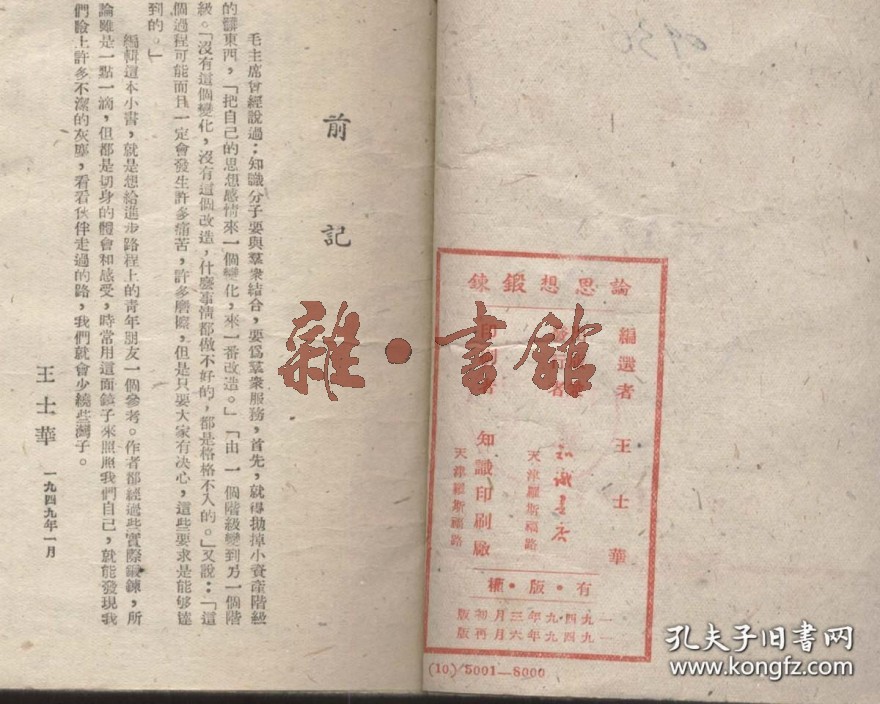 前記
毛主席曾經說過：知識分子要與羣衆結合，要爲羣衆服務，首先，就得拋掉小資產階級
的髒東西，「把自己的思想感情來一個變化，來一番改造。」「由一個階級變到另一個階
級。「沒有這個變化，沒有這個改造，什麼事情都做不好的，都是格格不入的。」又說：「這
個過程可能而且一定會發生許多痛苦，許多磨擦，但是只要大家有决心，這些要求是能够達
到的。」
編輯這本小書，就是想給進步路程上的青年朋友一個參考。作者都經過些實際鍛鍊，所
論雖是一點一滴，但都是切身的體會和感受，時常用這面鏡子來照照我們自己，就能發現我
們臉上許多不潔的灰塵，看看伙伴走過的路，我們就會少繞些灣子。
王士華 一九四九年一月
論思想鍛鍊
編選者 王士華
者 知識書店
天津羅斯福路
印刷者 知識印刷廠
天津羅斯福路
有·版·權
一九四九年三月初版
一九四九年六月再版
(10.) 5001—8000
雜·書館
孔夫子旧书网
www.kongfz.com